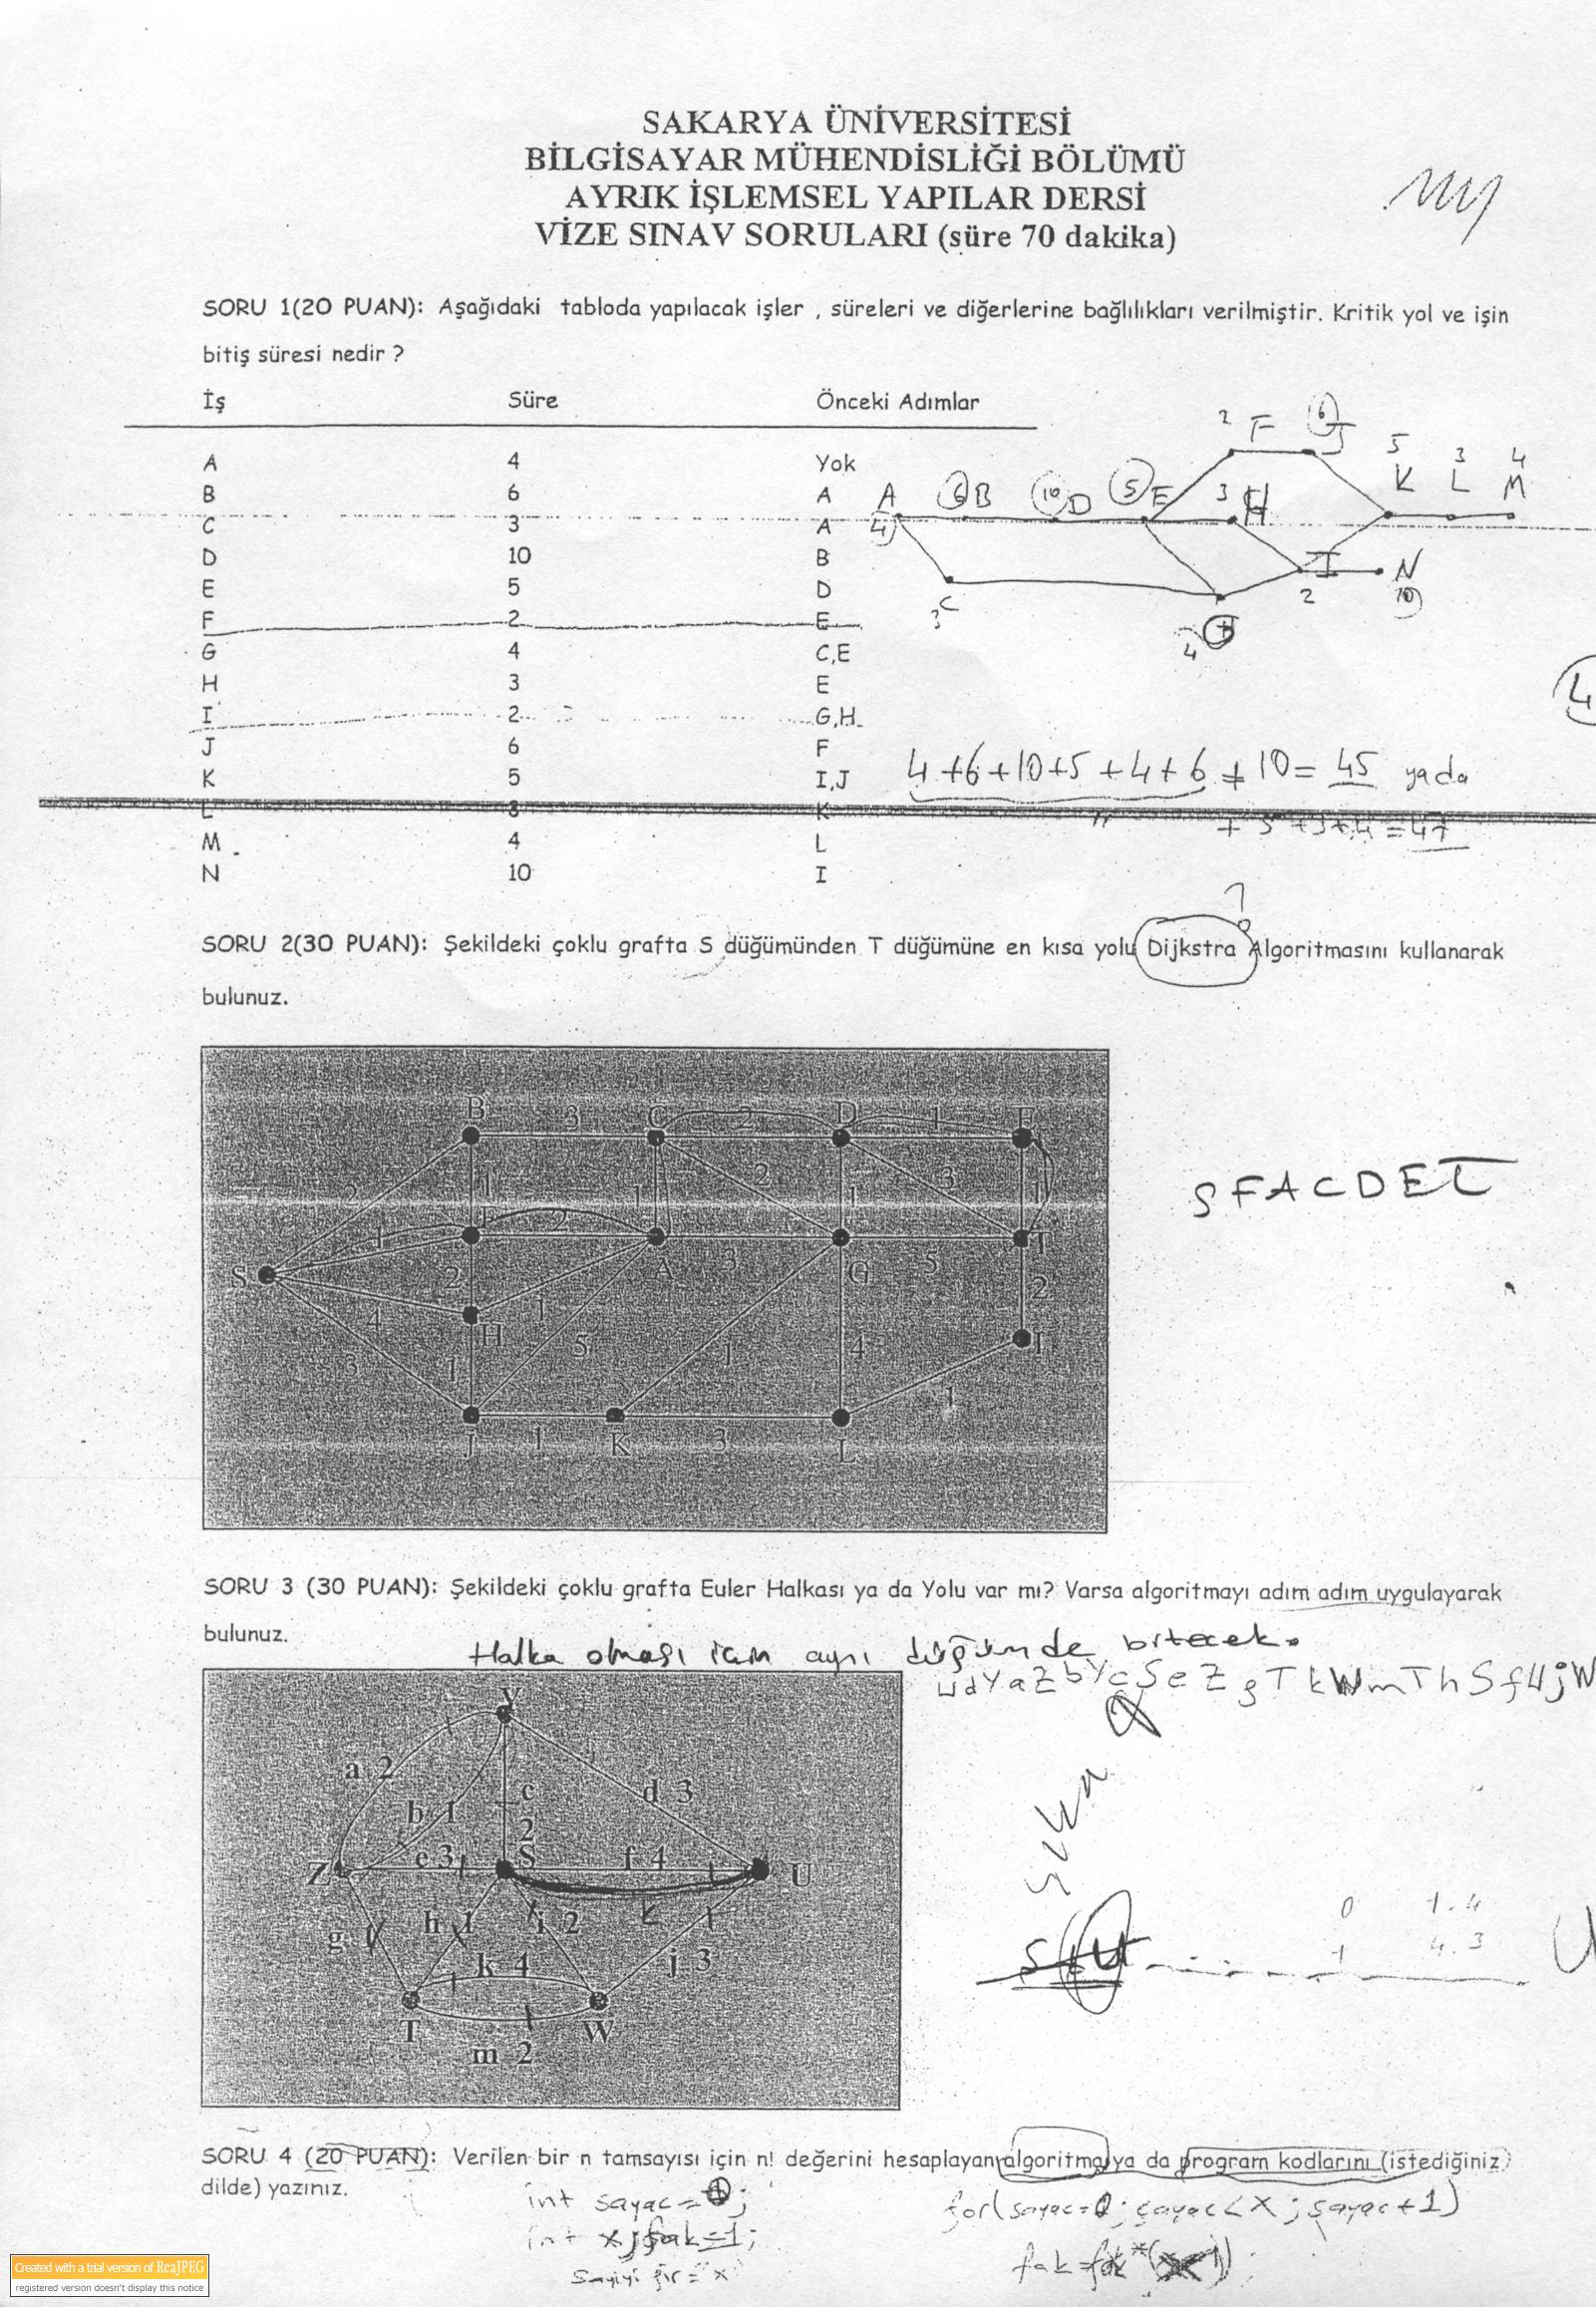 SAKARYA ÜNİVERSİTESİ
BİLGİSAYAR MÜHENDİSLİĞİ BÖLÜMÜ
AYRIK İŞLEMSEL YAPILAR DERSİ
VİZE SINAV SORULARI (süre 70 dakika)
SORU 1(20 PUAN): Aşağıdaki tabloda yapılacak işler , süreleri ve diğerlerine bağlılıkları verilmiştir. Kritik yol ve işin
bitiş süresi nedir ?
İş Süre Önceki Adımlar
A 4 Yok
B 6 A
C 3 A
D 10 B
E 5 D
F 2 E
G 4 C,E
H 3 E
I 2 G,H
J 6 F
K 5 I,J
L 3 K
M 4 L
N 10 I
2 F 6 J
5 3 4
K L M
A 6 B 10 D 5 E 3 H
4
I N
3 C 2 10
4
4
4+6+10+5+4+6+10= 45 yada
" + 5+3+4=47
SORU 2(30 PUAN): Şekildeki çoklu grafta S düğümünden T düğümüne en kısa yolu Dijkstra Algoritmasını kullanarak
bulunuz.
B 3 C 2 D 1 E
2 1 1 2 1 3 1
1 F 2 T
S 2 A 3 G 5
4 H 1 2
3 1 5 1 4 I
J 1 K 3 L 1
SFACDET
SORU 3 (30 PUAN): Şekildeki çoklu grafta Euler Halkası ya da Yolu var mı? Varsa algoritmayı adım adım uygulayarak
bulunuz.
Halka olması için aynı düğümde bitecek.
UdYaZbYcSeZgTkWmThSfUjW
a 2 d 3
c
b 1 2
Z e 3 S f 4 U
h 1 i 2
g k 4 j 3
T W
m 2
0 1.4
1 4.3
U
SORU 4 (20 PUAN): Verilen bir n tamsayısı için n! değerini hesaplayan algoritma ya da program kodlarını (istediğiniz
dilde) yazınız.
int sayac=0; for(sayac=0; sayac<x; sayac+1)
int x, fak=1;
Sayiyi gir = x
Created with a trial version of ReaJPEG
registered version doesn't display this notice